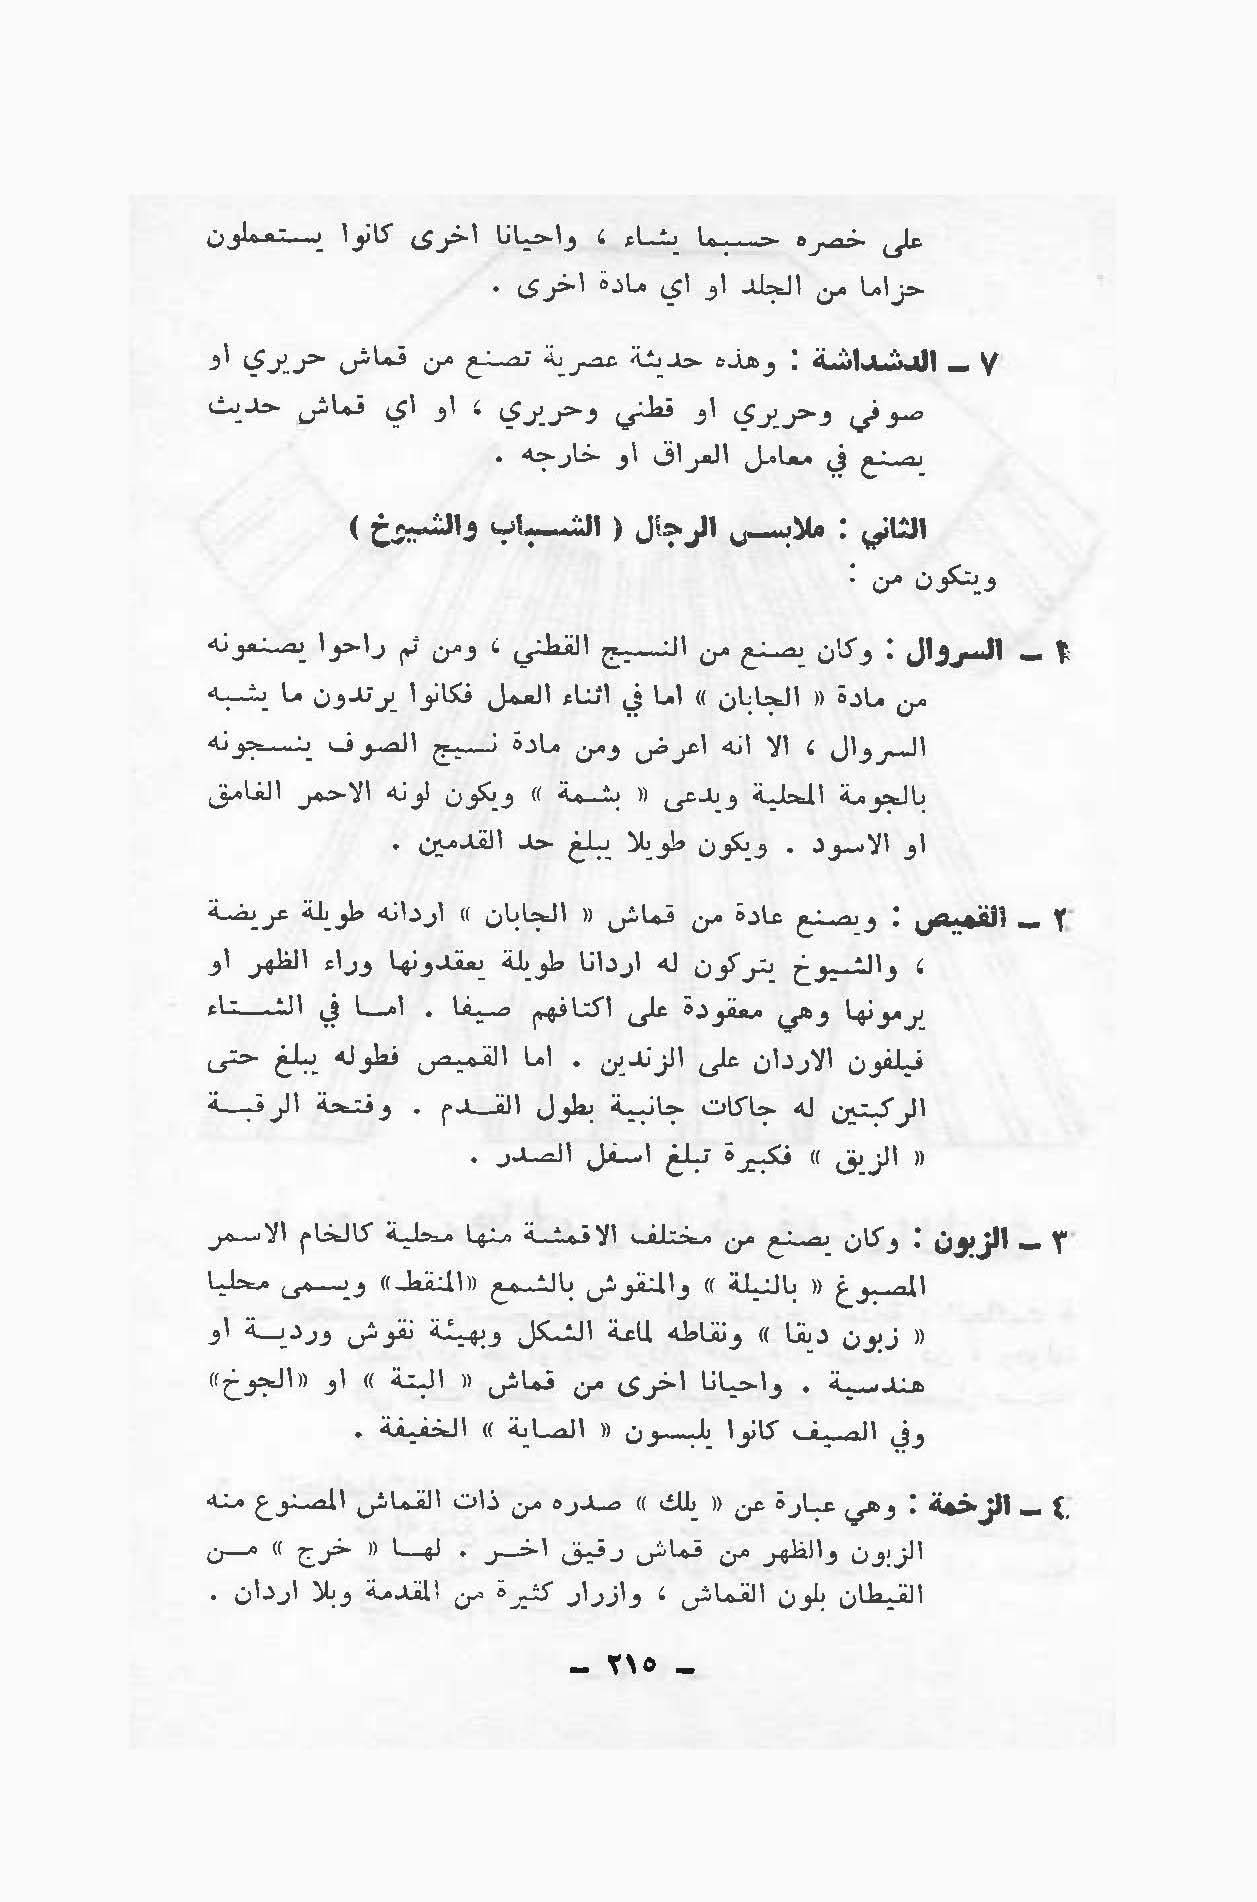 على خصره حسبما يشاء ، واحيانا اخرى كانوا يستعملون
حزاما من الجلد او اي مادة اخرى .
٧ ــ الدشداشة : وهذه حديثة عصرية تصنع من قماش حريري او
صوفي وحريري او قطني وحريري ، او اي قماش حديث
يصنع في معامل العراق او خارجه .
الثاني : ملابس الرجال ( الشباب والشيوخ )
ويتكون من :
١ ــ السروال : وكان يصنع من النسيج القطني ، ومن ثم راحوا يصنعونه
من مادة « الجابان » اما في اثناء العمل فكانوا يرتدون ما يشبه
السروال ، الا انه اعرض ومن مادة نسيج الصوف ينسجونه
بالجومة المحلية ويدعى « بشمة » ويكون لونه الاحمر الغامق
او الاسود . ويكون طويلا يبلغ حد القدمين .
٢ ــ القميص : ويصنع عادة من قماش « الجابان » اردانه طويلة عريضة
، والشيوخ يتركون له اردانا طويلة يعقدونها وراء الظهر او
يرمونها وهي معقودة على اكتافهم صيفا . اما في الشتاء
فيلفون الاردان على الزندين . اما القميص فطوله يبلغ حتى
الركبتين له جاكات جانبية بطول القدم . وفتحة الرقبة
« الزيق » فكبيرة تبلغ اسفل الصدر .
٣ ــ الزبون : وكان يصنع من مختلف الاقمشة منها محلية كالخام الاسمر
المصبوغ « بالنيلة » والمنقوش بالشمع «المنقط» ويسمى محليا
« زبون ديقا » ونقاطه لماعة الشكل وبهيئة نقوش وردية او
هندسية . واحيانا اخرى من قماش « البتة » او «الجوخ»
وفي الصيف كانوا يلبسون « الصاية » الخفيفة .
٤ ــ الزخمة : وهي عبارة عن « يلك » صدره من ذات القماش المصنوع منه
الزبون والظهر من قماش رقيق اخر . لها « خرج » من
القيطان بلون القماش ، وازرار كثيرة من المقدمة وبلا اردان .
ــ ٢١٥ ــ